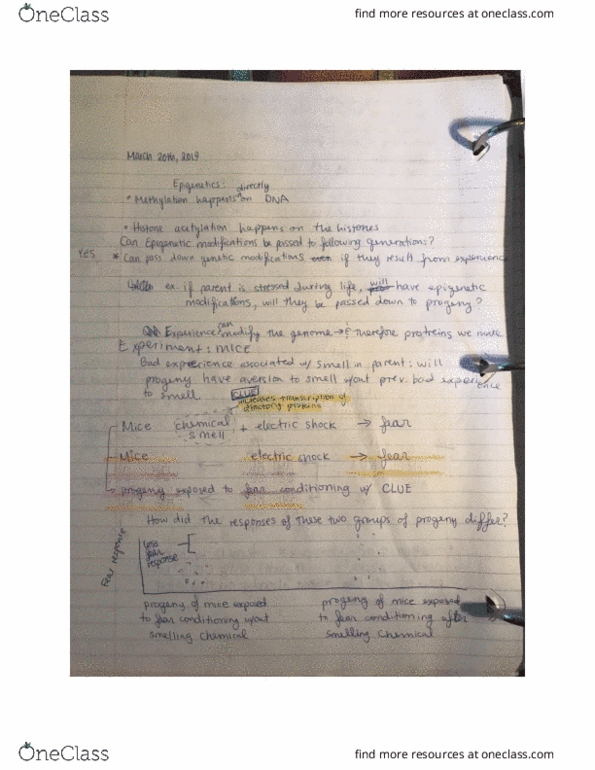 OneClass
find more resources at oneclass.com
March 20th, 2019
Epigenetics:
directly
• Methylation happens on DNA
• Histone acetylation happens on the histones
Can Epigenetic modifications be passed to following generations?
YES * Can pass down genetic modifications even if they result from experience
ex. if parent is stressed during life, will have epigenetic
modifications, will they be passed down to progeny?
Experience can modify the genome → & therefore proteins we make
Experiment: MICE
Bad experience associated w/ smell in parent: will
progeny have aversion to smell w/out prev. bad experience
to smell.
CLUE
increases transcription of
olfactory proteins
Mice chemical smell + electric shock → fear
Mice electric shock → fear
→ progeny exposed to fear conditioning w/ CLUE
How did the responses of these two groups of progeny differ?
Fear response
less
fear
response
progeny of mice exposed
to fear conditioning w/out
smelling chemical
progeny of mice exposed
to fear conditioning after
smelling chemical
OneClass
find more resources at oneclass.com